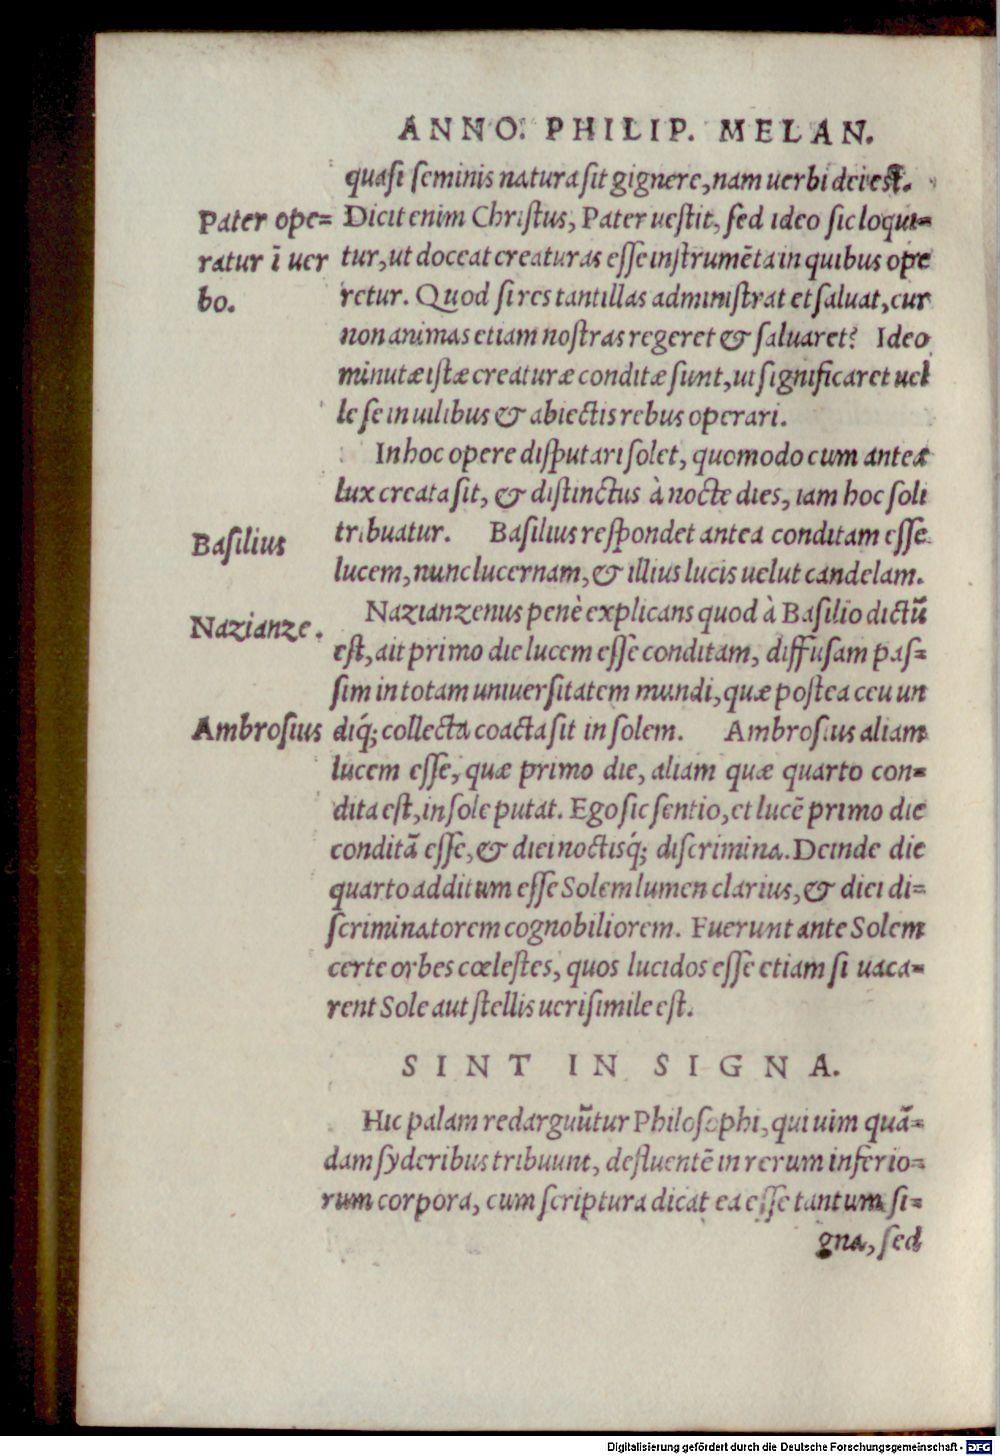 ANNO. PHILIP. MELAN.
quasi seminis natura sit gignere, nam uerbi dei est.
Pater ope=
ratur ī uer
bo.
Dicit enim Christus, Pater uestit, sed ideo sic loqui=
tur, ut doceat creaturas esse instrumēta in quibus ope
retur. Quod si res tantillas administrat et saluat, cur
non animas etiam nostras regeret & saluaret? Ideo
minutæ istæ creaturæ conditæ sunt, ut significaret uel
le se in uilibus & abiectis rebus operari.
In hoc opere disputari solet, quomodo cum antea
lux creata sit, & distinctus à nocte dies, iam hoc soli
tribuatur. Basilius respondet antea conditam esse
Basilius
lucem, nunc lucernam, & illius lucis uelut candelam.
Nazianze.
Nazianzenus penè explicans quod à Basilio dictū
est, ait primo die lucem esse conditam, diffusam pas=
sim in totam uniuersitatem mundi, quæ postea ceu un
Ambrosius
diq́; collecta coacta sit in solem. Ambrosius aliam
lucem esse, quæ primo die, aliam quæ quarto con=
dita est, in sole putat. Ego sic sentio, et lucē primo die
conditā esse, & diei noctisq́; discrimina. Deinde die
quarto additum esse Solem lumen clarius, & diei di=
scriminatorem cognobiliorem. Fuerunt ante Solem
certe orbes cœlestes, quos lucidos esse etiam si uaca=
rent Sole aut stellis uerisimile est.
SINT IN SIGNA.
Hic palam redarguūtur Philosophi, qui uim quā=
dam syderibus tribuunt, defluentē in rerum inferio=
rum corpora, cum scriptura dicat ea esse tantum si=
gna, sed
Digitalisierung gefördert durch die Deutsche Forschungsgemeinschaft - DFG